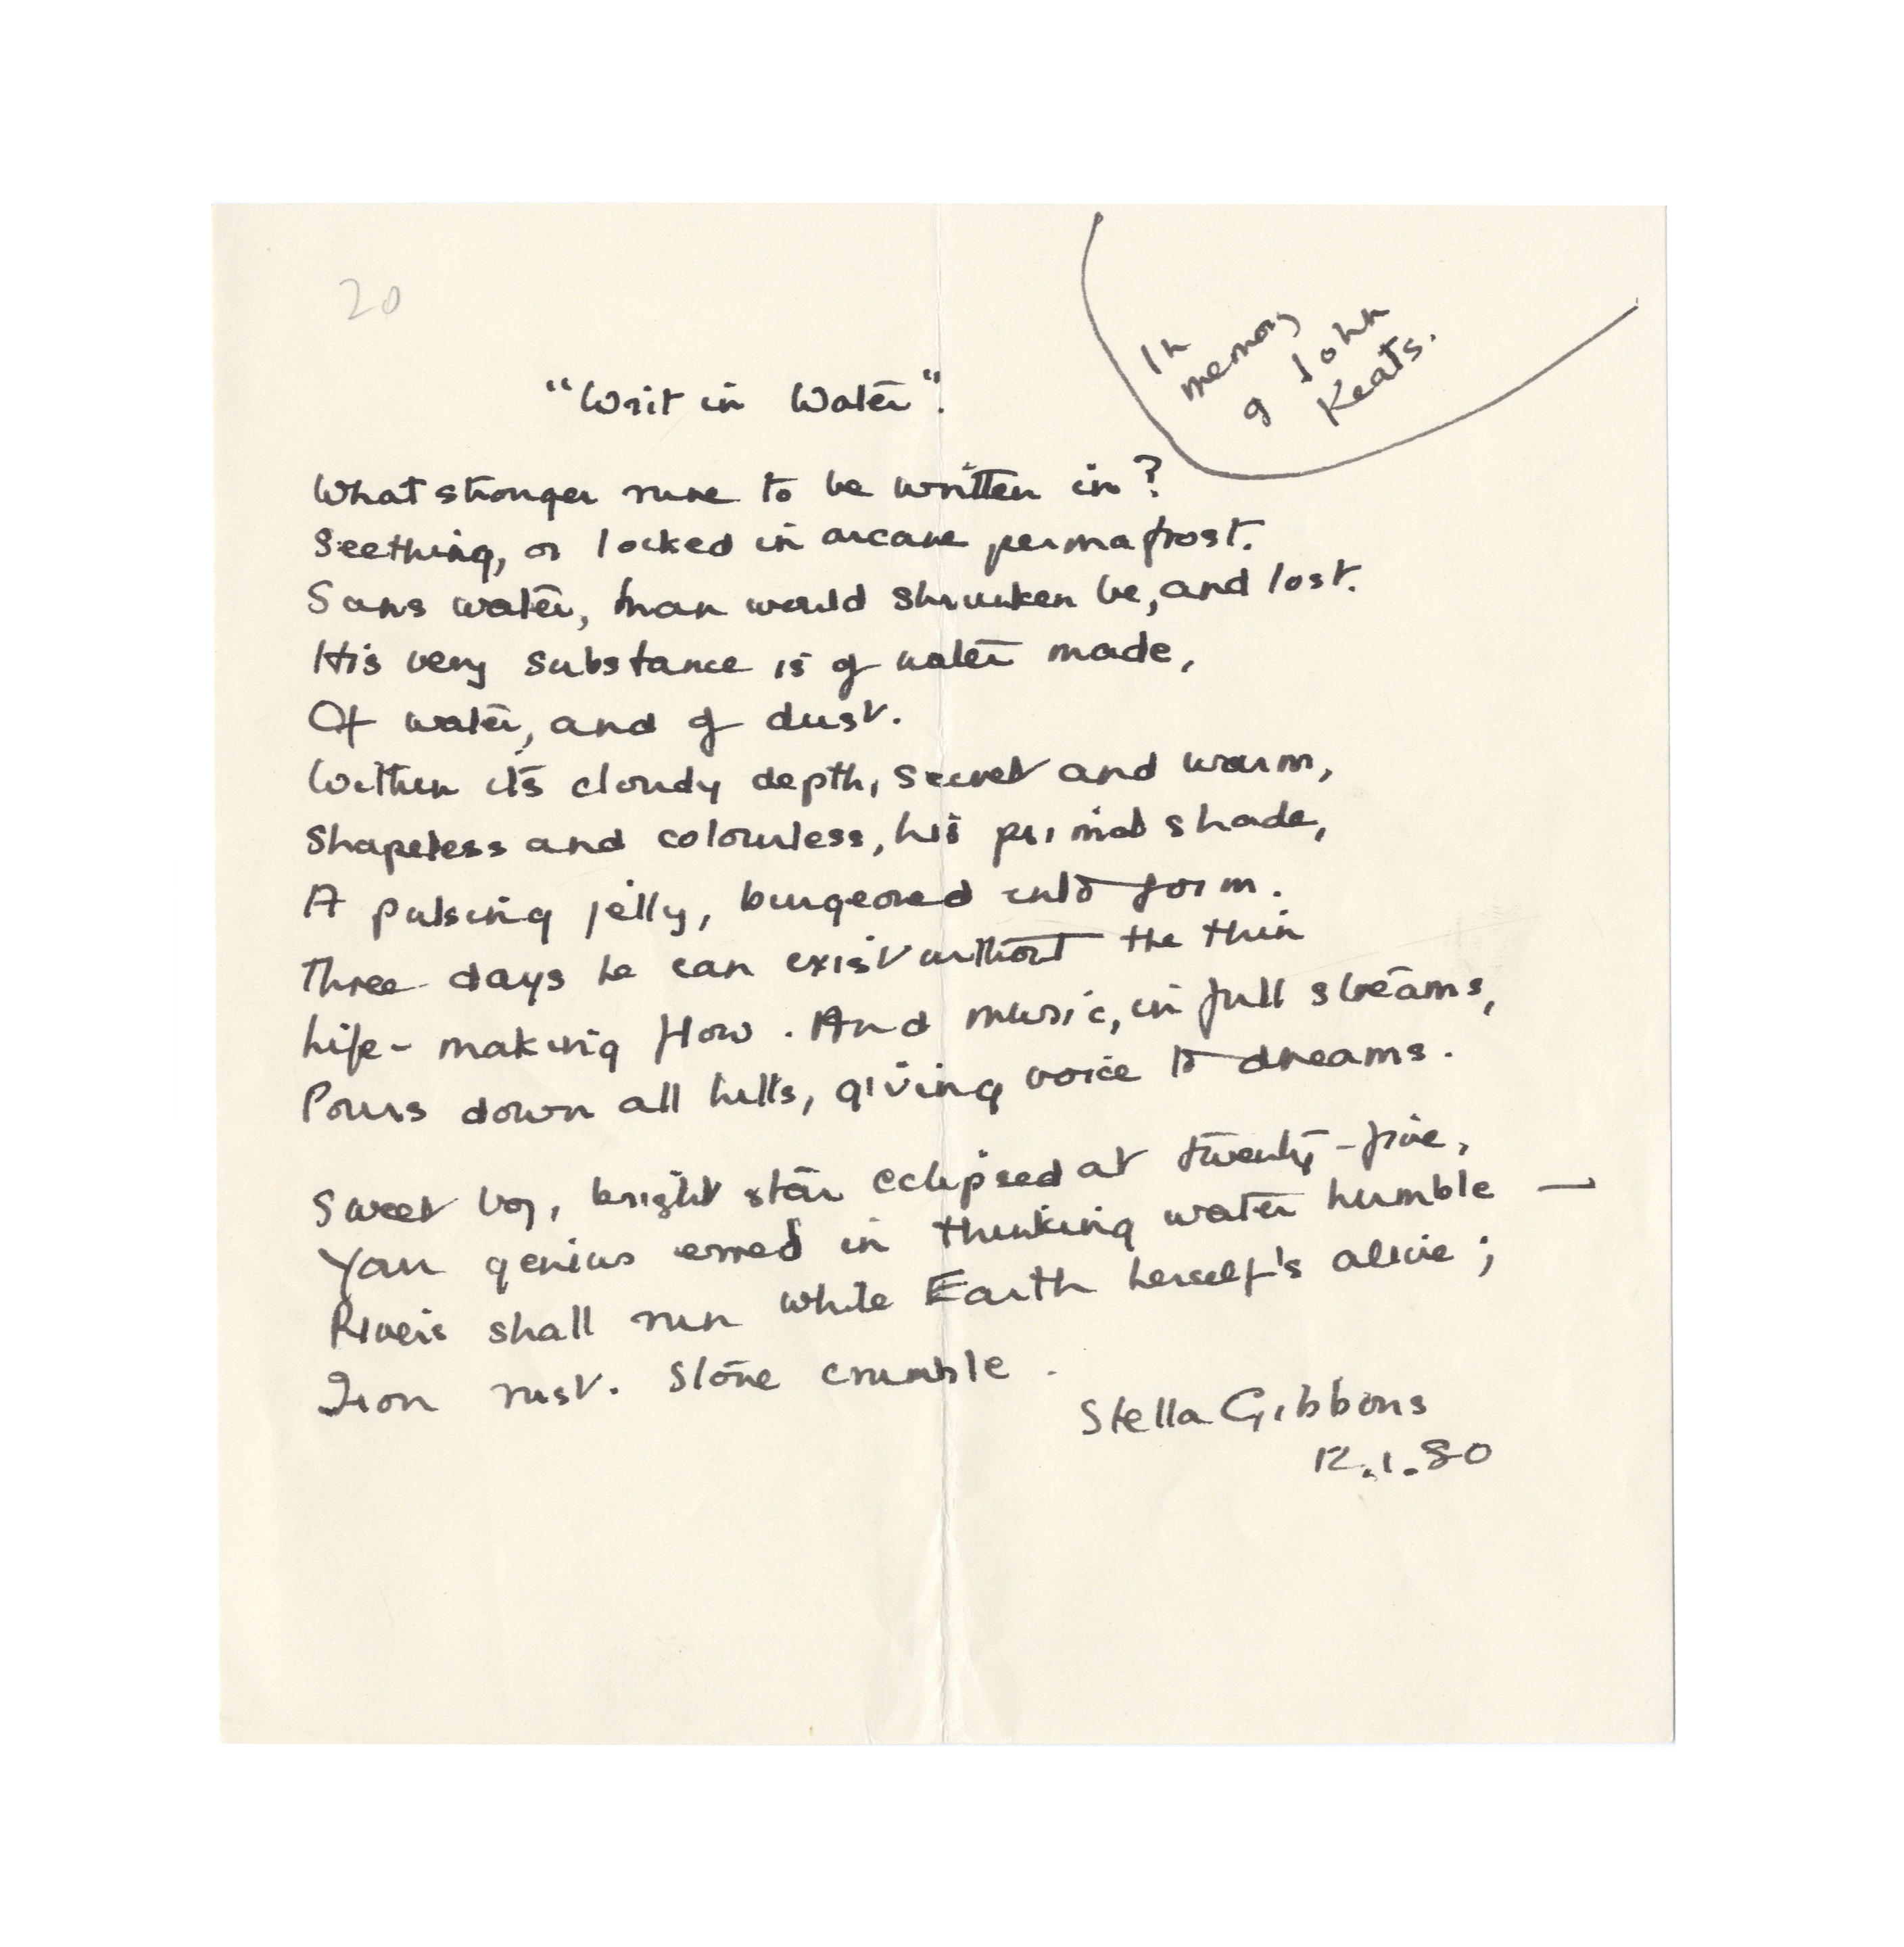 20
In
memory
of John
Keats.
"Writ in Water".
What stronger rune to be written in?
Seething, or locked in arcane permafrost.
Sans water, man would shrunken be, and lost.
His very substance is of water made,
Of water, and of dust.
Within its cloudy depth, secret and warm,
Shapeless and colourless, his primal shade,
A pulsing jelly, burgeoned into form.
Three days he can exist without the thin
Life-making flow. And music, in full streams,
Pours down all hills, giving voice to dreams.
Sweet boy, bright star eclipsed at twenty-five,
Your genius erred in thinking water humble —
Rivers shall run while Earth herself's alive;
Iron rust. Stone crumble.
Stella Gibbons
12.1.80